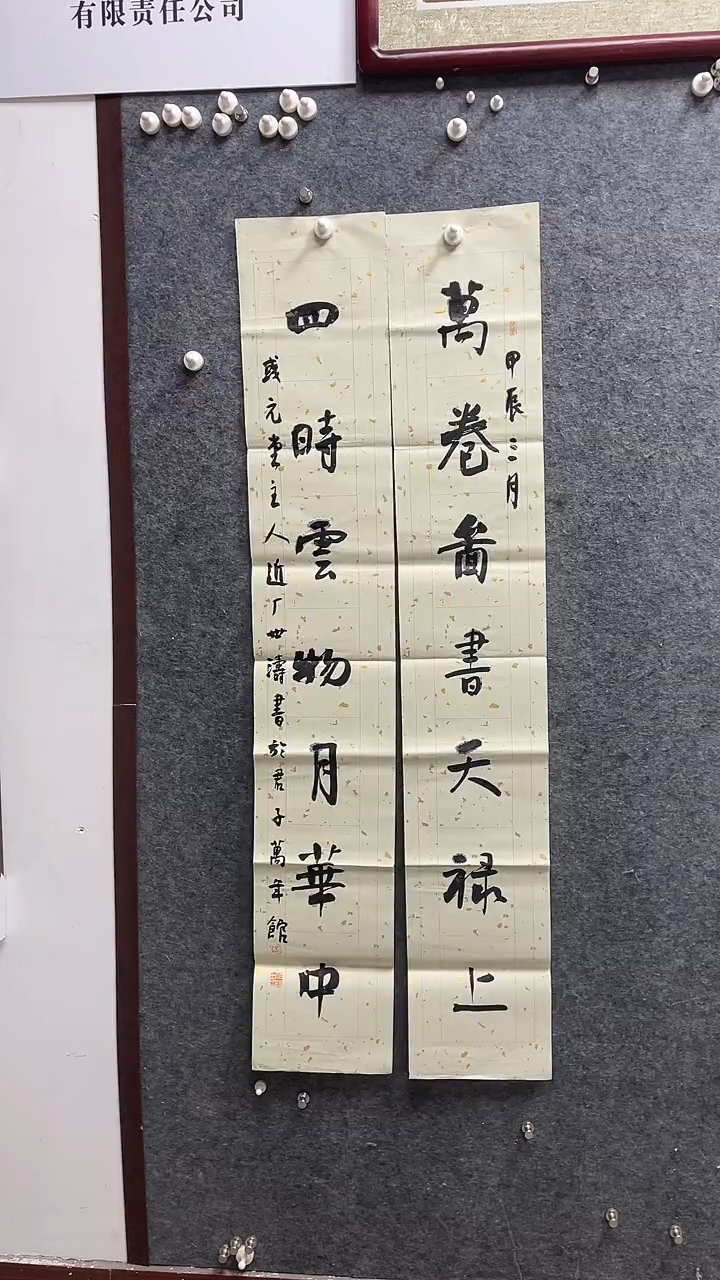 有限责任公司
甲辰三月
萬卷啚書天禄上
四時雲物月華中
或元堂主人近厂世濤書於君子萬年館